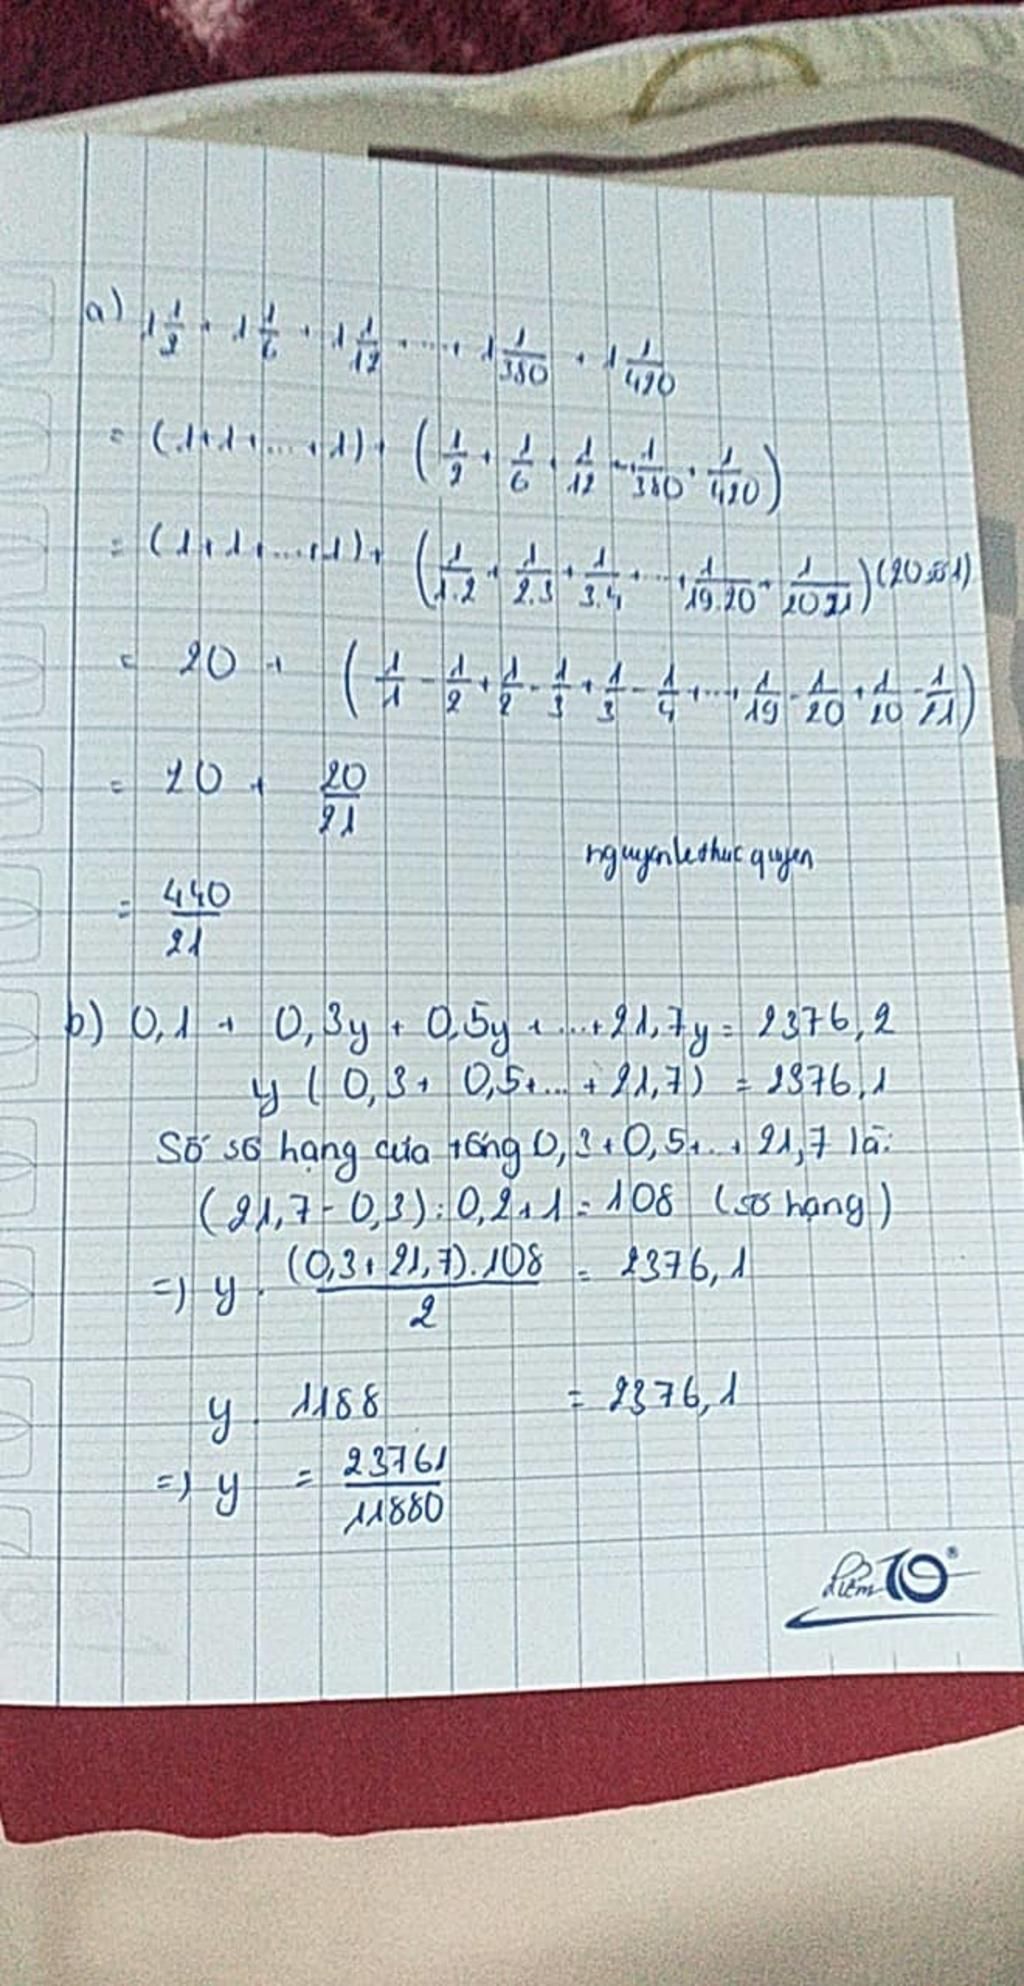 a) 1 1/2 + 1 1/6 + 1 1/12 + .... + 1 1/380 + 1 1/420
= (1+1+...+1) + (1/2 + 1/6 + 1/12 + ... + 1/380 + 1/420)
= (1+1+...+1) + (1/1.2 + 1/2.3 + 1/3.4 + ... + 1/19.20 + 1/20.21) (20 số 1)
= 20 + (1/1 - 1/2 + 1/2 - 1/3 + 1/3 - 1/4 + ... + 1/19 - 1/20 + 1/20 - 1/21)
= 20 + 20/21
nguyenlethucquyen
= 440/21
b) 0,1 + 0,3y + 0,5y + ... + 21,7y = 2376,2
y (0,3 + 0,5 + ... + 21,7) = 2376,1
Số số hạng của tổng 0,3 + 0,5 + .. + 21,7 là:
(21,7 - 0,3) : 0,2 + 1 = 108 (số hạng)
=) y . (0,3 + 21,7).108/2 = 2376,1
y . 1188 = 2376,1
=) y = 23761/11880
Điểm 10